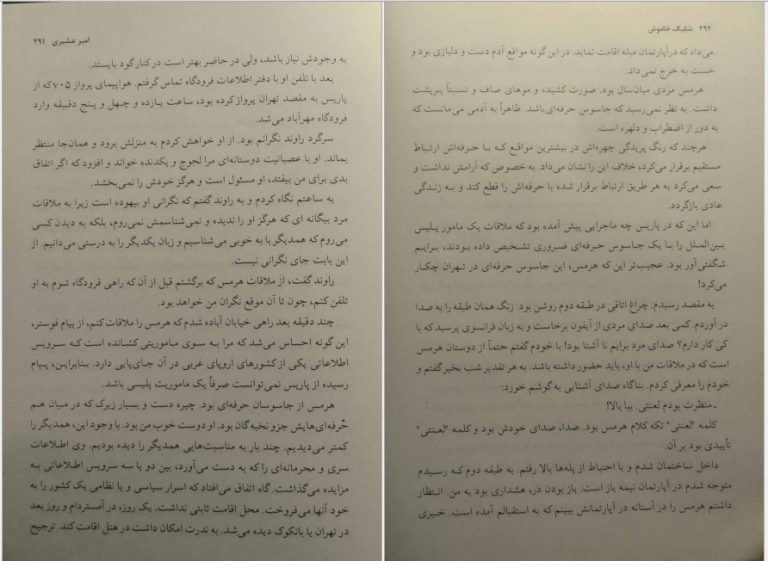 امیر عشیری ۲۹۱
به وجودش نیاز باشد، ولی در حاضر بهتر است در کنار گود بایستد.
بعد با تلفن او با دفتر اطلاعات فرودگاه تماس گرفتم. هواپیمای پرواز ۷۰۵ که از
پاریس به مقصد تهران پرواز کرده بود، ساعت یازده و چهل و پنج دقیقه وارد
فرودگاه مهرآباد می‌شد.
سرگرد راوند نگرانم بود. از او خواهش کردم به منزلش برود و همان‌جا منتظر
بماند. او با عصبانیت دوستانه‌ای مرا لجوج و یکدنده خواند و افزود که اگر اتفاق
بدی برای من بیفتد، او مسئول است و هرگز خودش را نمی‌بخشد.
به ساعتم نگاه کردم و به راوند گفتم که نگرانی او بیهوده است زیرا به ملاقات
مرد بیگانه ای که هرگز او را ندیده و نمی‌شناسمش نمی‌روم، بلکه به دیدن کسی
می‌روم که همدیگر با به خوبی می‌شناسیم و زبان یکدیگر را به درستی می‌دانیم. از
این بابت جای نگرانی نیست.
راوند گفت، از ملاقات هرمس که برگشتم قبل از آن که راهی فرودگاه شوم به او
تلفن کنم، چون تا آن موقع نگران من خواهد بود.
چند دقیقه بعد راهی خیابان آباده شدم که هرمس را ملاقات کنم، از پیام فوستر،
این گونه احساس می‌شد که مرا به سوی ماموریتی کشانده است که سرویس
اطلاعاتی یکی از کشورهای اروپای غربی در آن جای‌پایی دارد. بنابراین، پیام
رسیده از پاریس نمی‌توانست صرفاً یک ماموریت پلیسی باشد.
هرمس از جاسوسان حرفه‌ای بود. چیره دست و بسیار زیرک که در میان هم
حُرفه‌ای‌هایش جزو نخبه‌گان بود. او دوست خوب من بود. با وجود این، همدیگر را
کمتر می‌دیدیم. چند بار به مناسبت‌هایی همدیگر را دیده بودیم. وی اطلاعات
سری و محرمانه‌ای را که به دست می‌آورد، بین دو یا سه سرویس اطلاعاتی به
مزایده می‌گذاشت. گاه اتفاق می‌افتاد که اسرار سیاسی و یا نظامی یک کشور را به
خود آنها می‌فروخت. محل اقامت ثابتی نداشت. یک روز، در آمستردام و روز بعد
در تهران یا بانکوک دیده می‌شد. به ندرت امکان داشت در هتل اقامت کند. ترجیح
۲۹۲ شلیک خاموش
می‌داد که در آپارتمان مبله اقامت نماید. در این گونه مواقع آدم دست و دلبازی بود و
خست به خرج نمی‌داد.
هرمس مردی میان‌سال بود. صورت کشیده و موهای صاف و نسبتاً پرپشت
داشت. به نظر نمی‌رسید که جاسوس حرفه‌ای باشد. ظاهراً به آدمی می‌مانست که
به دور از اضطراب و دلهره است.
هرچند که رنگ پریدگی چهره‌اش در بیشترین مواقع که با حرفه‌اش ارتباط
مستقیم برقرار می‌کرد، خلاف این را نشان می‌داد. به خصوص که آرامش نداشت و
سعی می‌کرد به هر طریق ارتباط برقرار شده با حرفه‌اش را قطع کند و به زندگی
عادی بازگردد.
اما این که در پاریس چه ماجرایی پیش آمده بود که ملاقات یک مامور پلیس
بین‌الملل را با یک جاسوس حرفه‌ای ضروری تشخیص داده بودند، برایم
شگفتی‌آور بود. عجیب‌تر این که هرمس، این جاسوس حرفه‌ای در تهران چکار
می‌کرد!
به مقصد رسیدم. چراغ اتاقی در طبقه دوم روشن بود. زنگ همان طبقه را به صدا
در آوردم. کمی بعد صدای مردی از آیفون برخاست و به زبان فرانسوی پرسید که با
کی کار دارم؟ صدای مرد برایم نا آشنا بود! با خودم گفتم حتماً از دوستان هرمس
است که در ملاقات من با او، باید حضور داشته باشد. به هر تقدیر شب بخیر گفتم و
خودم را معرفی کردم. بناگاه صدای آشنایی به گوشم خورد:
ـ منتظرت بودم لعنتی. بیا بالا!
کلمه "لعنتی" تکه کلام هرمس بود. صدا، صدای خودش بود و کلمه "لعنتی"
تأییدی بود بر آن.
داخل ساختمان شدم و با احتیاط از پله‌ها بالا رفتم. به طبقه دوم که رسیدم
متوجه شدم در آپارتمان نیمه باز است. باز بودن در، هشداری بود به من. انتظار
داشتم هرمس را در آستانه در آپارتمانش ببینم که به استقبالم آمده است. خبری